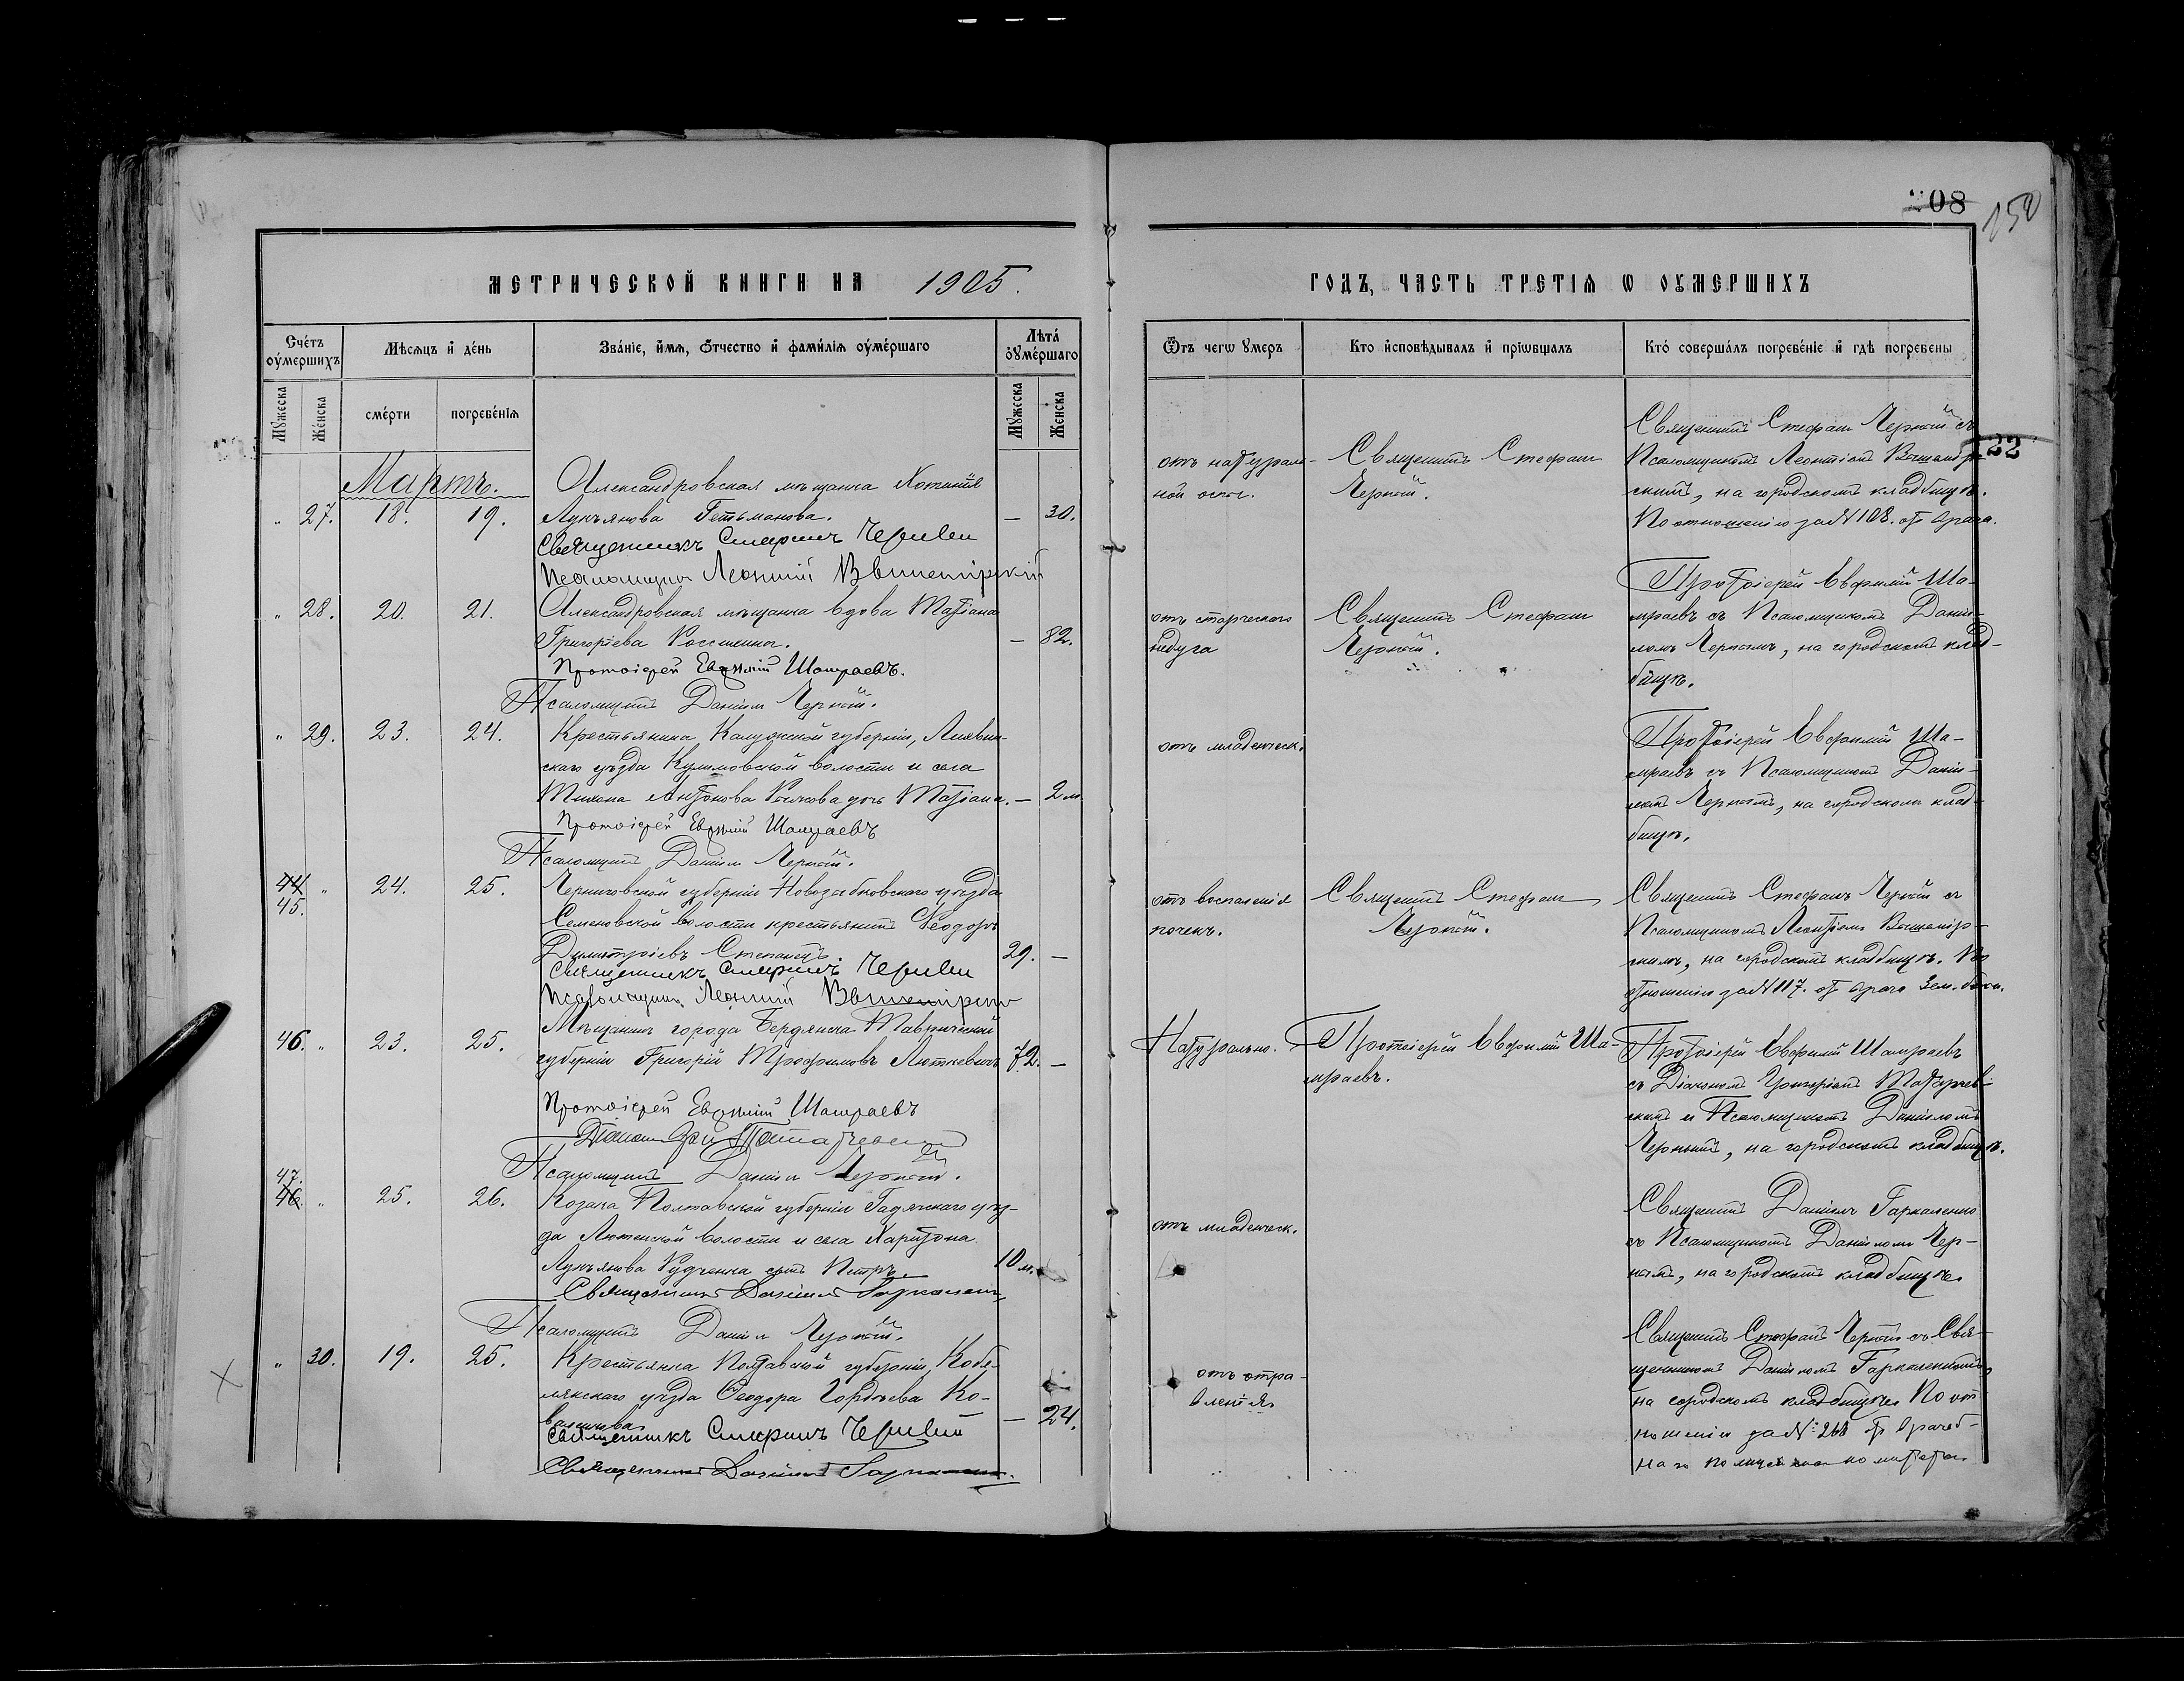 208
150
22
МЕТРИЧЕСКОЙ КНИГИ НА 1905.
ГОДЪ, ЧАСТЬ ТРЕТІЯ Ѡ ОУМЕРШИХЪ
Счетъ оумершихъ
Мѣсяцъ и день
Званіе, имя, отчество и фамилія оумершаго
Лѣта оумершаго
Мужеска
Женска
смерти
погребенія
Мужеска
Женска
Отъ чегѡ умеръ
Кто исповѣдывалъ и пріѡбщалъ
Кто совершалъ погребеніе и гдѣ погребены
Мартъ.
" 27. 18. 19.
Александровская мѣщанка Хотинія
Лукьянова Гетьманова. — 30.
Священникъ Стефанъ Черный
Псаломщикъ Леонтій
отъ натураль-
ной оспы.
Священникъ Стефанъ
Черный.
Священникъ Стефанъ Черный съ
Псаломщикомъ Леонтіемъ
скимъ, на городскомъ кладбищѣ.
По отношенію за № 108. отъ врача.
" 28. 20. 21.
Александровская мѣщанка вдова Татіана
Григоріева — 82.
Протоіерей Евфимій Шамраевъ.
Псаломщикъ Даніилъ Черный.
отъ старческаго
недуга
Священникъ Стефанъ
Черный.
Протоіерей Евфимій Ша-
мраевъ съ Псаломщикомъ Дании-
ломъ Чернымъ, на городскомъ клад-
бищѣ.
" 29. 23. 24.
Крестьянина Калужской губерніи,
скаго уѣзда волости и села
Антонова дочь Татіана. — 2 м.
Протоіерей Евфимій Шамраевъ
Псаломщикъ Даніилъ Черный.
отъ младенческ.
Протоіерей Евфимій Ша-
мраевъ съ Псаломщикомъ Даніи-
ломъ Чернымъ, на городскомъ клад-
бищѣ.
44 " 24. 25.
45.
Черниговской губерніи Новозыбковскаго уѣзда
Семеновской волости крестьянинъ Ѳеодоръ
Димитріевъ Степанецъ. 29. —
Священникъ Стефанъ Черный
Псаломщикъ Леонтій
отъ воспаленія
почекъ.
Священникъ Стефанъ
Черный.
Священникъ Стефанъ Черный съ
Псаломщикомъ Леонтіемъ
скимъ, на городскомъ кладбищѣ. По
отношенію за № 117. отъ врача Зем. больн.
46. " 23. 25.
Мѣщанинъ города Бердянска Таврической
губерніи Григорій Трофимовъ Люткевичъ 72. —
Протоіерей Евфимій Шамраевъ
Псаломщикъ Даніилъ Черный.
Натурально.
Протоіерей Евфимій Ша-
мраевъ.
Протоіерей Евфимій Шамраевъ
съ Діакономъ Григоріемъ
скимъ и Псаломщикомъ Даніиломъ
Чернымъ, на городскомъ кладбищѣ.
47.
46. " 25. 26.
Козака Полтавской губерніи Гадячскаго уѣз-
да Лютенской волости и села Харитона
Лукьянова Рудченка сынъ Петръ. 10 м.
Священникъ Даніилъ Гаркаленко
Псаломщикъ Даніилъ Черный.
отъ младенческ.
Священникъ Даніилъ Гаркаленко
съ Псаломщикомъ Даніиломъ Чер-
нымъ, на городскомъ кладбищѣ.
" 30. 19. 25.
Крестьянка Полтавской губерніи Кобе-
лякскаго уѣзда Ѳеодора Гордѣева Ко-
валева — 24.
Священникъ Стефанъ Черный
Священникъ Даніилъ Гаркаленко
отъ отра-
вленія
Священникъ Стефанъ Черный съ Свя-
щенникомъ Даніиломъ Гаркаленкомъ,
на городскомъ кладбищѣ. По от-
ношенію за № 268 отъ Врачеб-
наго